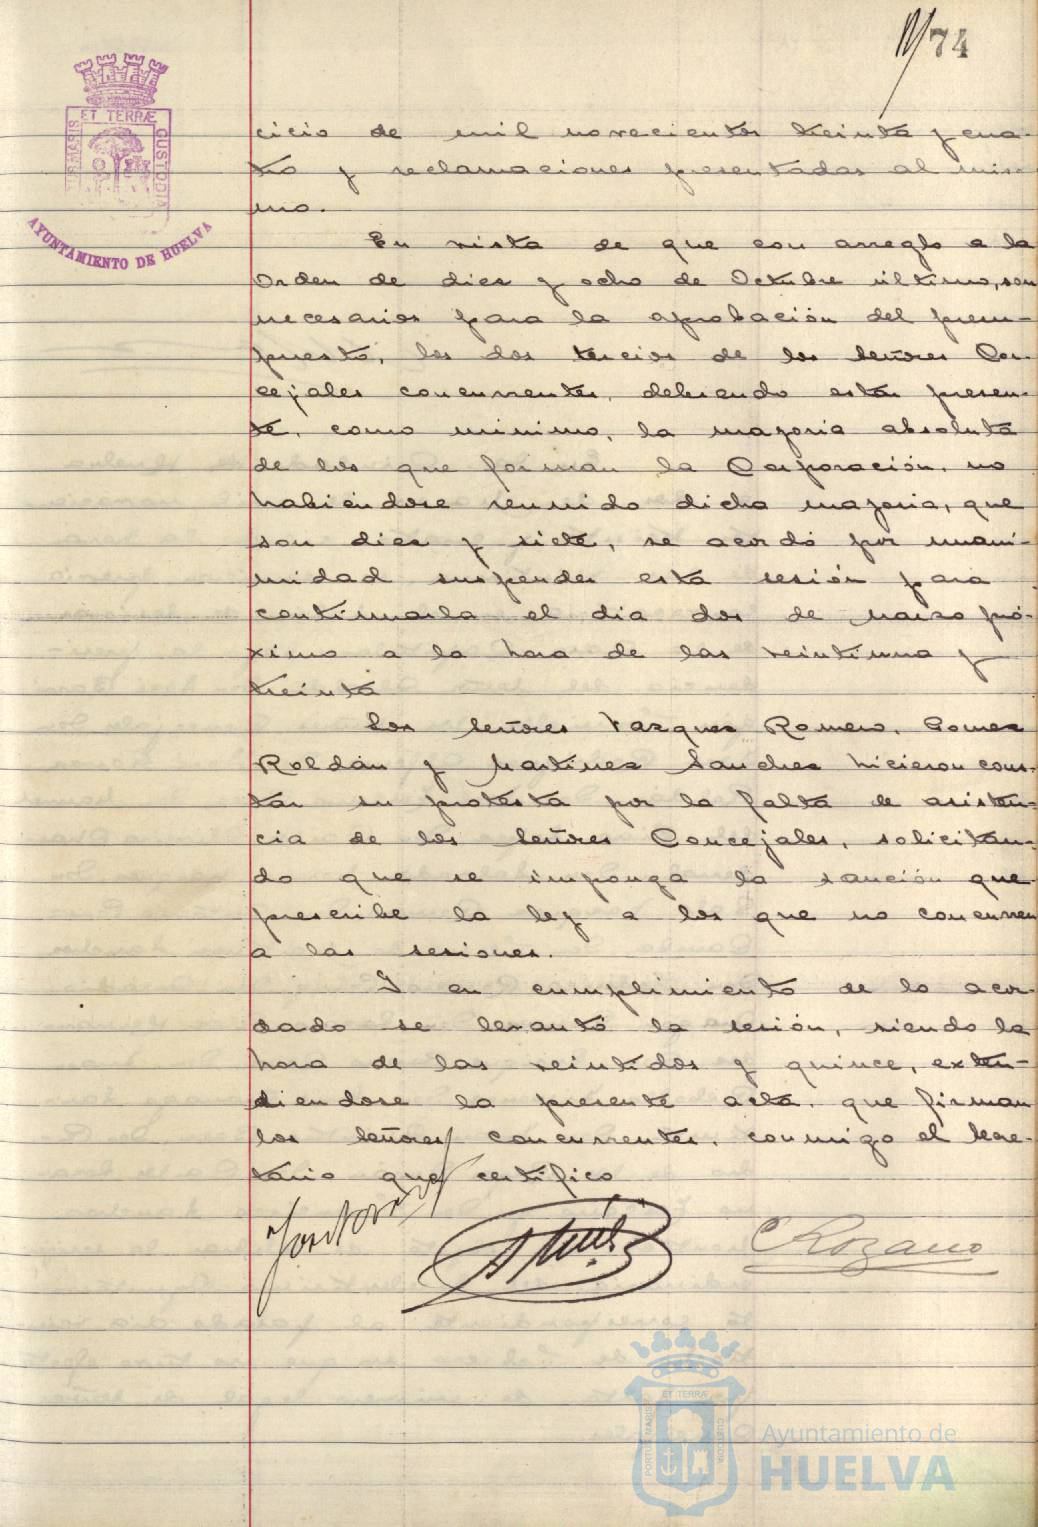 74
ET TERRÆ
CUSTODIA
AYUNTAMIENTO DE HUELVA
cicio de mil novecientos treinta y cua-
tro y reclamaciones presentadas al mis-
mo.
En vista de que con arreglo a la
Orden de diez y ocho de Octubre último, son
necesarios para la aprobación del presu-
puesto, los dos tercios de los señores Con-
cejales concurrentes, debiendo estar presen-
te, como mínimo, la mayoria absoluta
de los que forman la Corporación, no
habiéndose reunido dicha mayoria, que
son diez y siete, se acordó por unani-
midad suspender esta sesión para
continuarla el dia dos de Marzo pró-
ximo a la hora de las veintiuna y
treinta
Los señores Vazquez Romero, Gomez
Roldán y Martinez Sanchez hicieron cons-
tar su protesta por la falta de asisten-
cia de los señores Concejales, solicitan-
do que se imponga la sanción que
prescribe la ley a los que no concurren
a las sesiones.
Y en cumplimiento de lo acor-
dado se levantó la sesión, siendo la
hora de las veintidos y quince, exten-
diendose la presente acta, que firman
los señores concurrentes, conmigo el Secre-
tario que certifico
C Rozano
ET TERRÆ
PORTUS MARIS
CUSTODIA
Ayuntamiento de
HUELVA